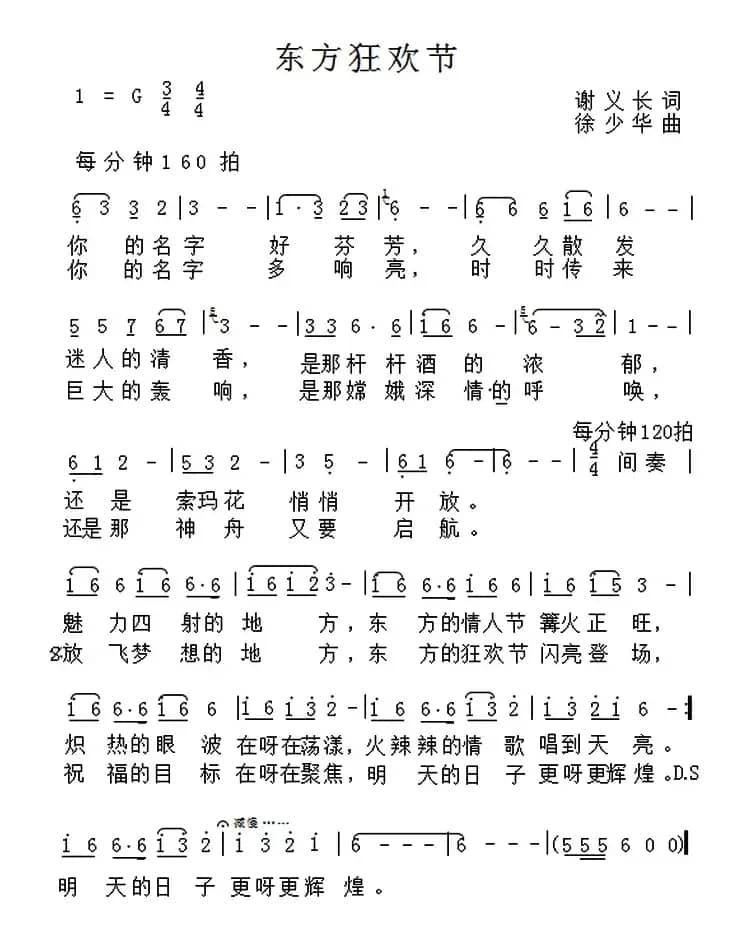 东方狂欢节
1 = G 3/4 4/4
谢义长词
徐少华曲
每分钟160拍
6 3 3 2 | 3 - - | 1· 3 2 3 | 6 - - | 6 6 6 1 6 | 6 - - |
你 的名字 好 芬芳，久 久散发
你 的名字 多 响亮，时 时传来
5 5 7 6 7 | 3 - - | 3 3 6 · 6 | 1 6 6 | 6 - 3 2 | 1 - - |
迷人的清香，是那杆杆酒的浓郁，
巨大的轰响，是那嫦娥深情·的呼唤，
每分钟120拍
6 1 2 - | 5 3 2 - | 3 5 - | 6 1 6 - | 6 - - | 4/4 间奏 |
还是索玛花悄悄开放。
还是那神舟又要启航。
1 6 6 1 6 6·6 | 1 6 1 2 3 - | 1 6 6·6 1 6 6 | 1 6 1 5 3 - |
魅力四射的地方，东方的情人节篝火正旺，
8放飞梦想的地方，东方的狂欢节闪亮登场，
1 6 6·6 1 6 6 | 1 6 1 3 2 - | 1 6 6·6 1 3 2 | 1 3 2 1 6 - :|
炽热的眼波在呀在荡漾，火辣辣的情歌唱到天亮。
祝福的目标在呀在聚焦，明天的日子更呀更辉煌。D.S
减慢……
1 6 6·6 1 3 2 | 1 3 2 1 | 6 - - - | 6 - - - | (5 5 5 6 0 0) |
明天的日子更呀更辉煌。